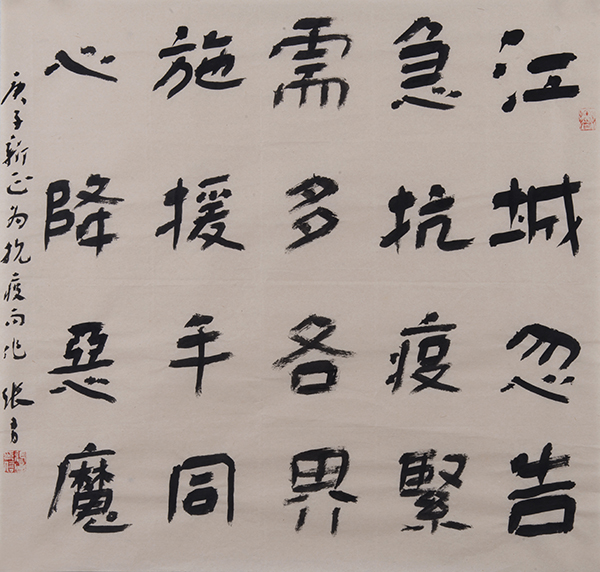 江城忽告
急抗疫緊
需多各界
施援手同
心降惡魔
庚子新正为抗疫而作 张青